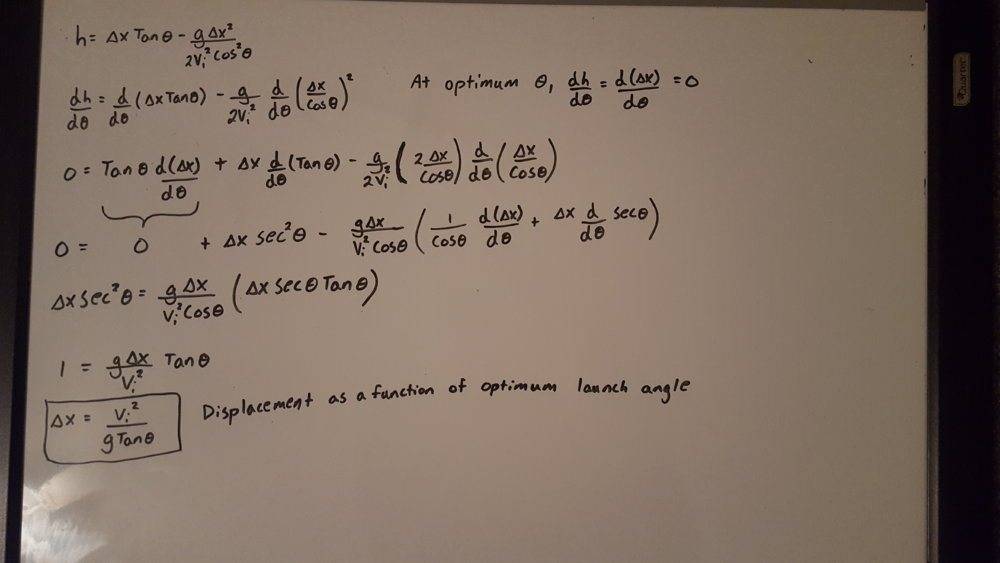 h = Δx Tanθ - gΔx² / 2Vᵢ²Cos²θ
dh/dθ = d/dθ (Δx Tanθ) - g/2Vᵢ² d/dθ (Δx/Cosθ)² At optimum θ, dh/dθ = d(Δx)/dθ = 0
0 = Tanθ d(Δx)/dθ + Δx d/dθ (Tanθ) - g/2Vᵢ² (2Δx/Cosθ) d/dθ (Δx/Cosθ)
0 = 0 + Δx Sec²θ - gΔx/Vᵢ²Cosθ (1/Cosθ d(Δx)/dθ + Δx d/dθ Secθ)
Δx Sec²θ = gΔx/Vᵢ²Cosθ (Δx Secθ Tanθ)
1 = gΔx/Vᵢ² Tanθ
Δx = Vᵢ²/gTanθ Displacement as a function of optimum launch angle
Quartet